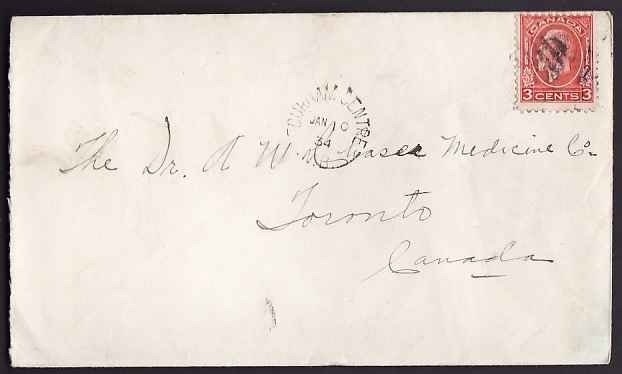 CANADA
3 CENTS 3
DURHAM CENTRE
JAN 10
34
The Dr. A W. Chase Medicine Co.
Toronto
Canada